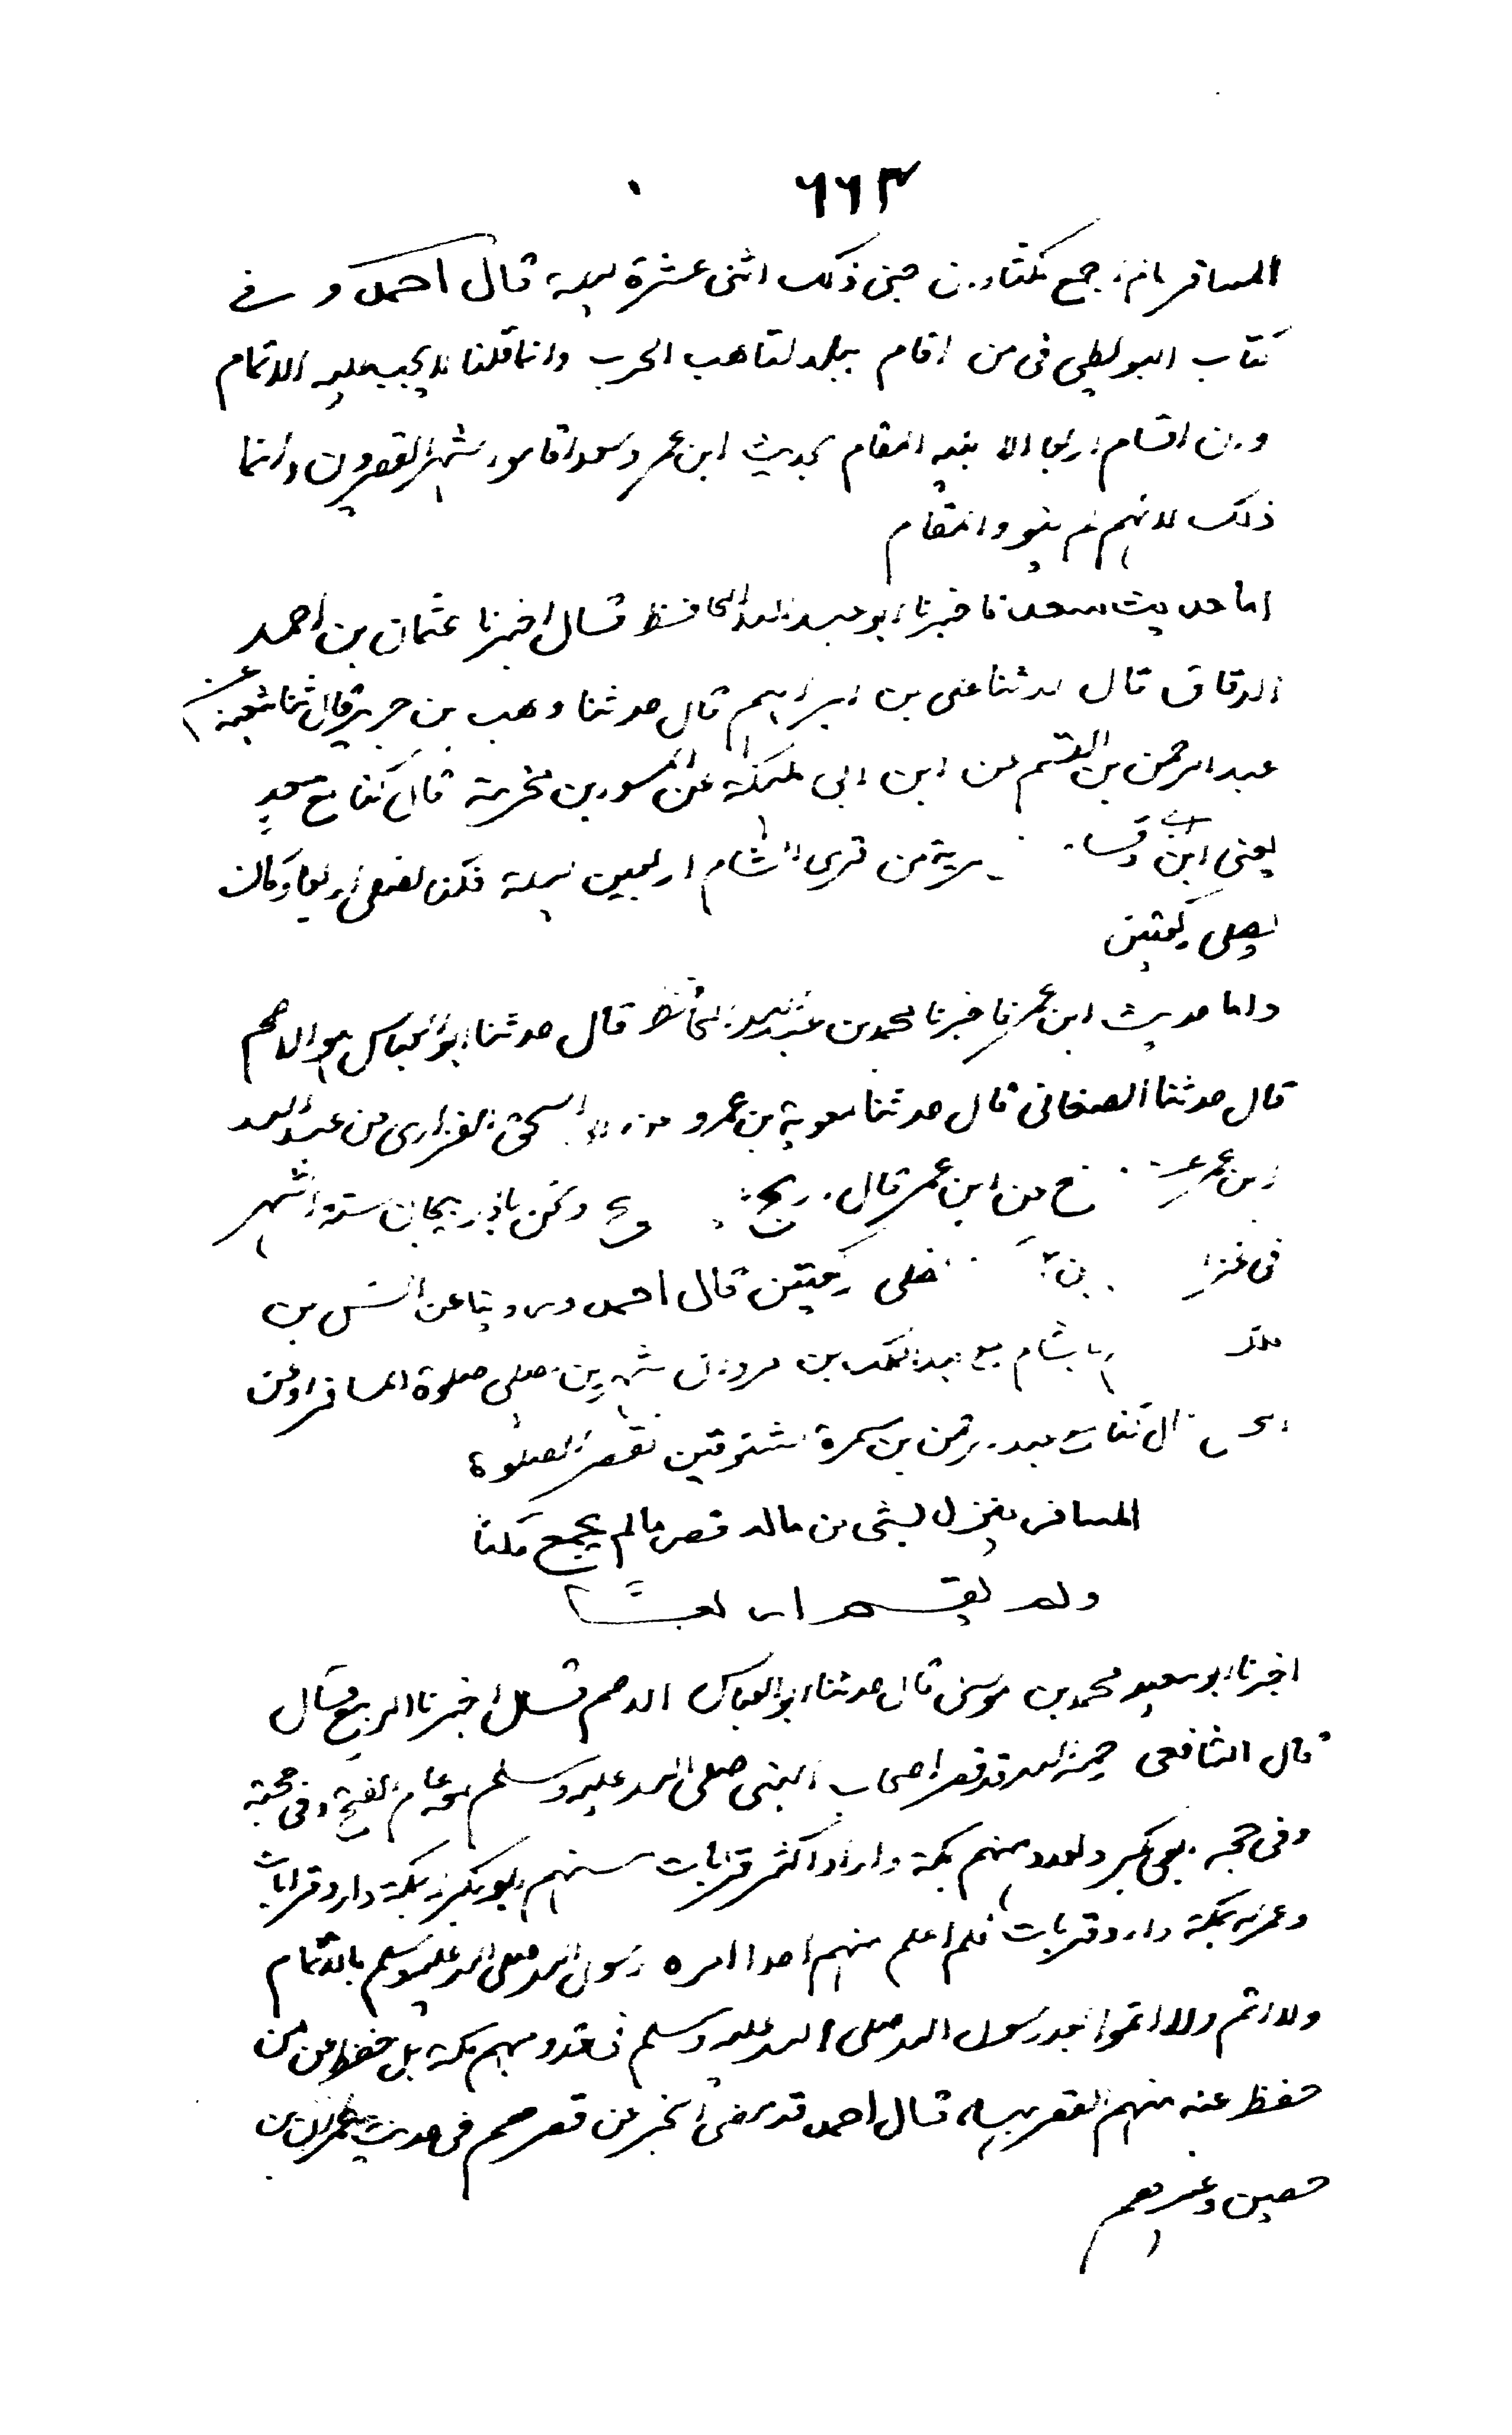 ٦٦٣
المسافر اذا جمع مكثا وبن حتى ذلك اثنى عشرة ليلة قال احمد و في
كتاب البويطي في من اقام ببلد لتاهب الحرب وانما قلنا لا يجب عليه الاتمام
وان اقام اربعا الا بنية المقام بحديث ابن عمر وسعد اقاموا شهرا يقصرون وانما
ذلك لانهم لم ينووا المقام
اما حديث سعد فاخبرنا ابو عبد الله الحافظ قال اخبرنا عثمان بن احمد
الدقاق قال حدثنا علي بن ابراهيم قال حدثنا وهب بن جرير قال ثنا شعبة عن
عبد الرحمن بن القسم عن ابن ابي مليكة عن المسور بن مخرمة قال كنا مع سعد
يعنى ابن ابي وقا قرية من قرى الشام اربعين ليلة فكنا نصلي اربعا وكان
يصلى ركعتين
واما حديث ابن عمر فاخبرنا محمد بن عبد الله الحافظ قال حدثنا ابو العباس هو الاصم
قال حدثنا الصغاني قال حدثنا معوية بن عمرو عن ابي اسحق الفزاري عن عبيد الله
بن عمر عن ع عن ابن عمر قال ارتج ونحن باذربيجان ستة اشهر
في غزا صلى ركعتين قال احمد وروينا عن انس بن
ملك م بالشام مع عبد الملك بن مروان شهرين يصلى صلوة المسافر وعن
الحسن قال كنا مع عبد الرحمن بن سمرة شتوتين نقصر الصلوة
المسافر ينزل بشئ من ماله قصر مالم يجمع مكثا
ولم يقم اربعًا
اخبرنا ابو سعيد محمد بن موسى قال حدثنا ابو العباس الاصم قال اخبرنا الربيع قال
قال الشافعي رحمة الله قد قصر اصحاب النبي صلى الله عليه وسلم معه عام الفتح وفى حجته
وفى حجة ابي بكر ولعدد منهم بمكة دار او اكثر وقرابات منهم ابو بكر له بمكة دار وقرابات
وعمر له بمكة دار وقرابات فلم اعلم منهم احدا امره رسول الله صلى الله عليه وسلم بالاتمام
ولا اتم ولا اتموا بعد رسول الله صلى الله عليه وسلم في قدومهم مكة بل حفظ عن من
حفظ عنه منهم القصر بها قال احمد قد مضى الخبر عن قصرهم في حديث عمران بن
حصين وغيرهم